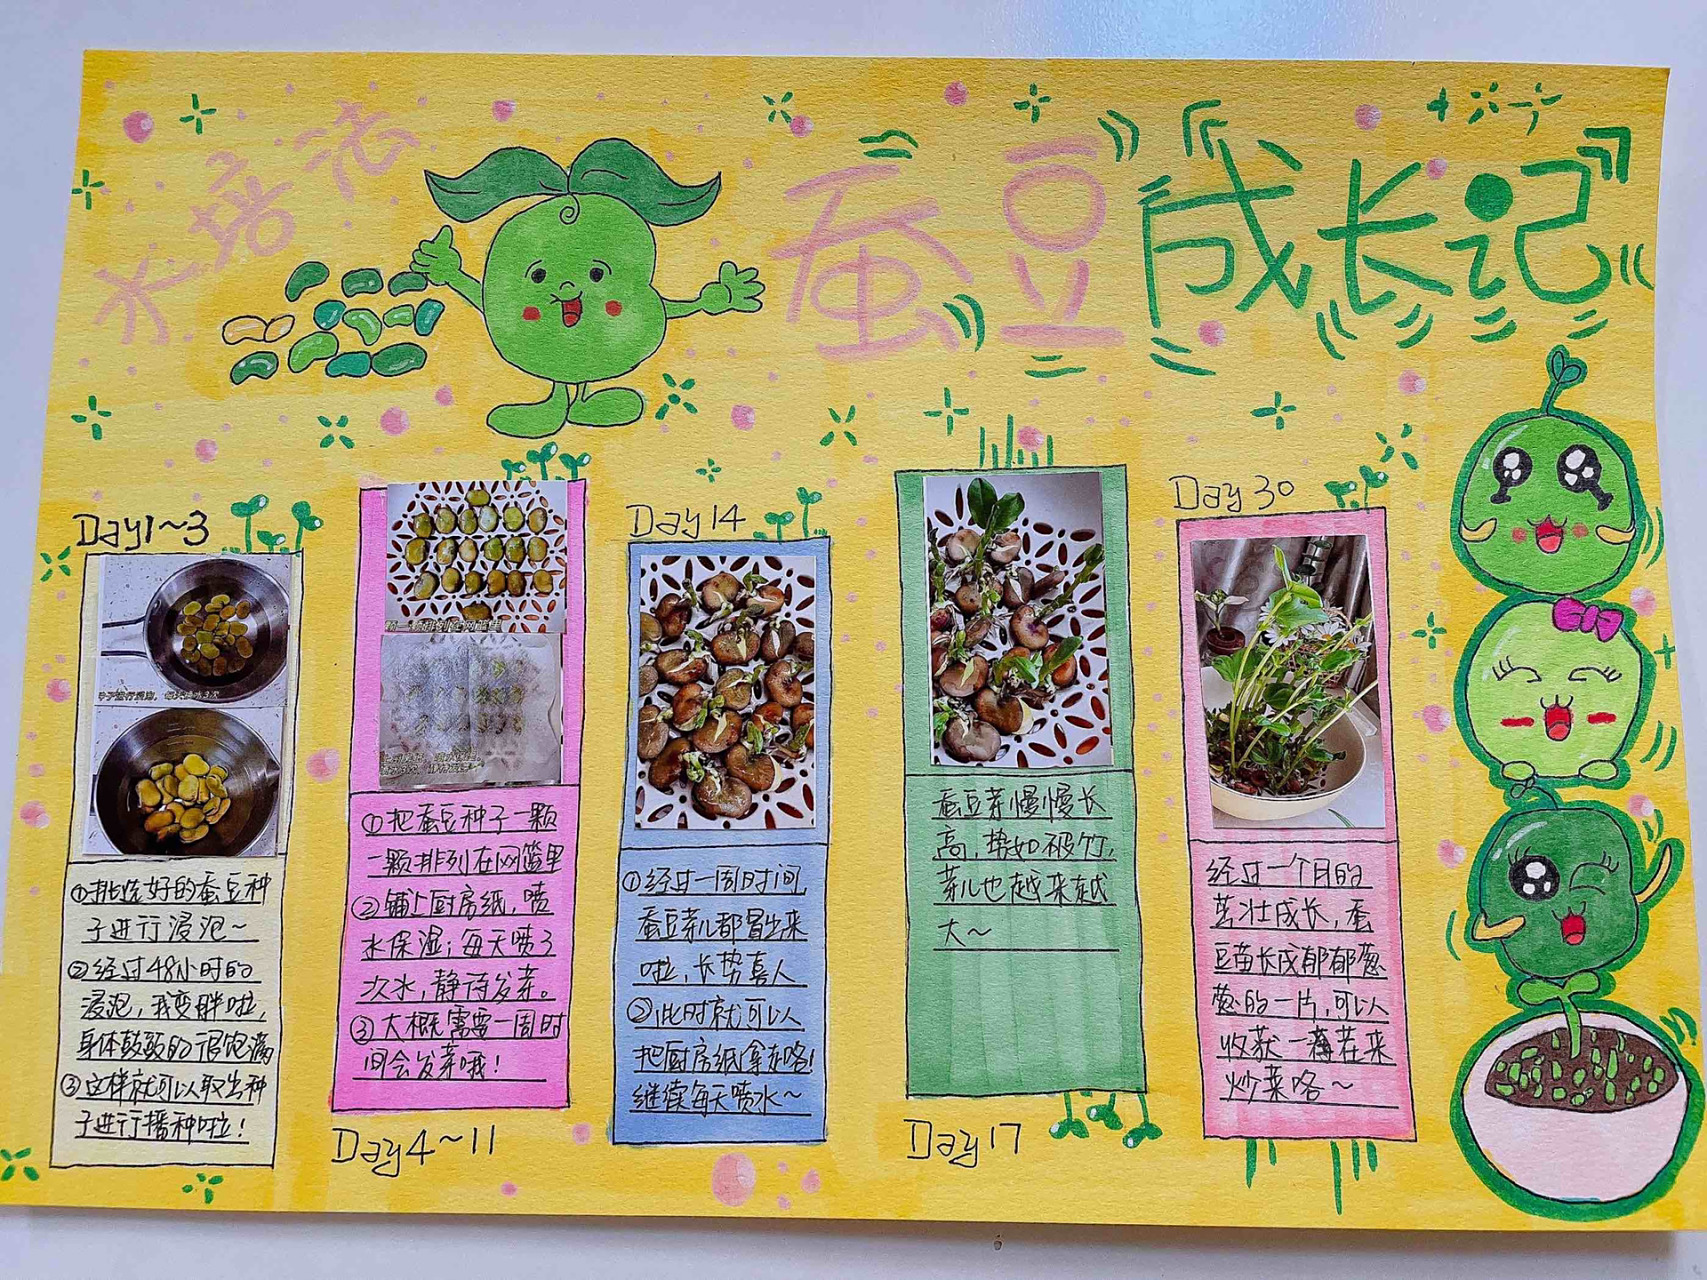 水培法
蚕豆『成长记』
Day1~3
①挑选好的蚕豆种
子进行浸泡~
②经过48小时的
浸泡，我变胖啦，
身体鼓鼓的很饱满
③这样就可以取出种
子进行播种啦！
颗一颗排列在网篮里
①把蚕豆种子一颗
一颗排列在网篮里
②铺上厨房纸，喷
水保湿；每天喷3
次水，静待发芽。
③大概需要一周时
间会发芽哦！
Day4~11
Day14
①经过一周时间
蚕豆芽儿都冒出来
啦，长势喜人
②此时就可以
把厨房纸拿走咯！
继续每天喷水~
蚕豆芽慢慢长
高，势如破竹，
芽儿也越来越
大~
Day17
Day30
经过一个月的
茁壮成长，蚕
豆苗长成郁郁葱
葱的一片，可以
收获一薄茬来
炒菜咯~